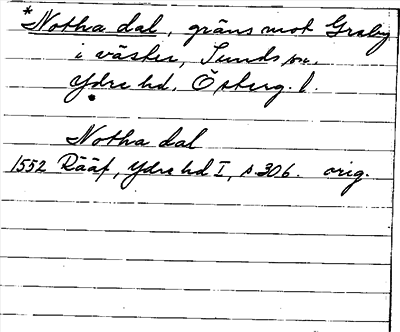 *Notha dal, gräns mot Graby
i väster, Sunds sn.
Ydre hd, Österg. l.
Notha dal
1552 Rääf, Ydre hd I, s. 306. orig.